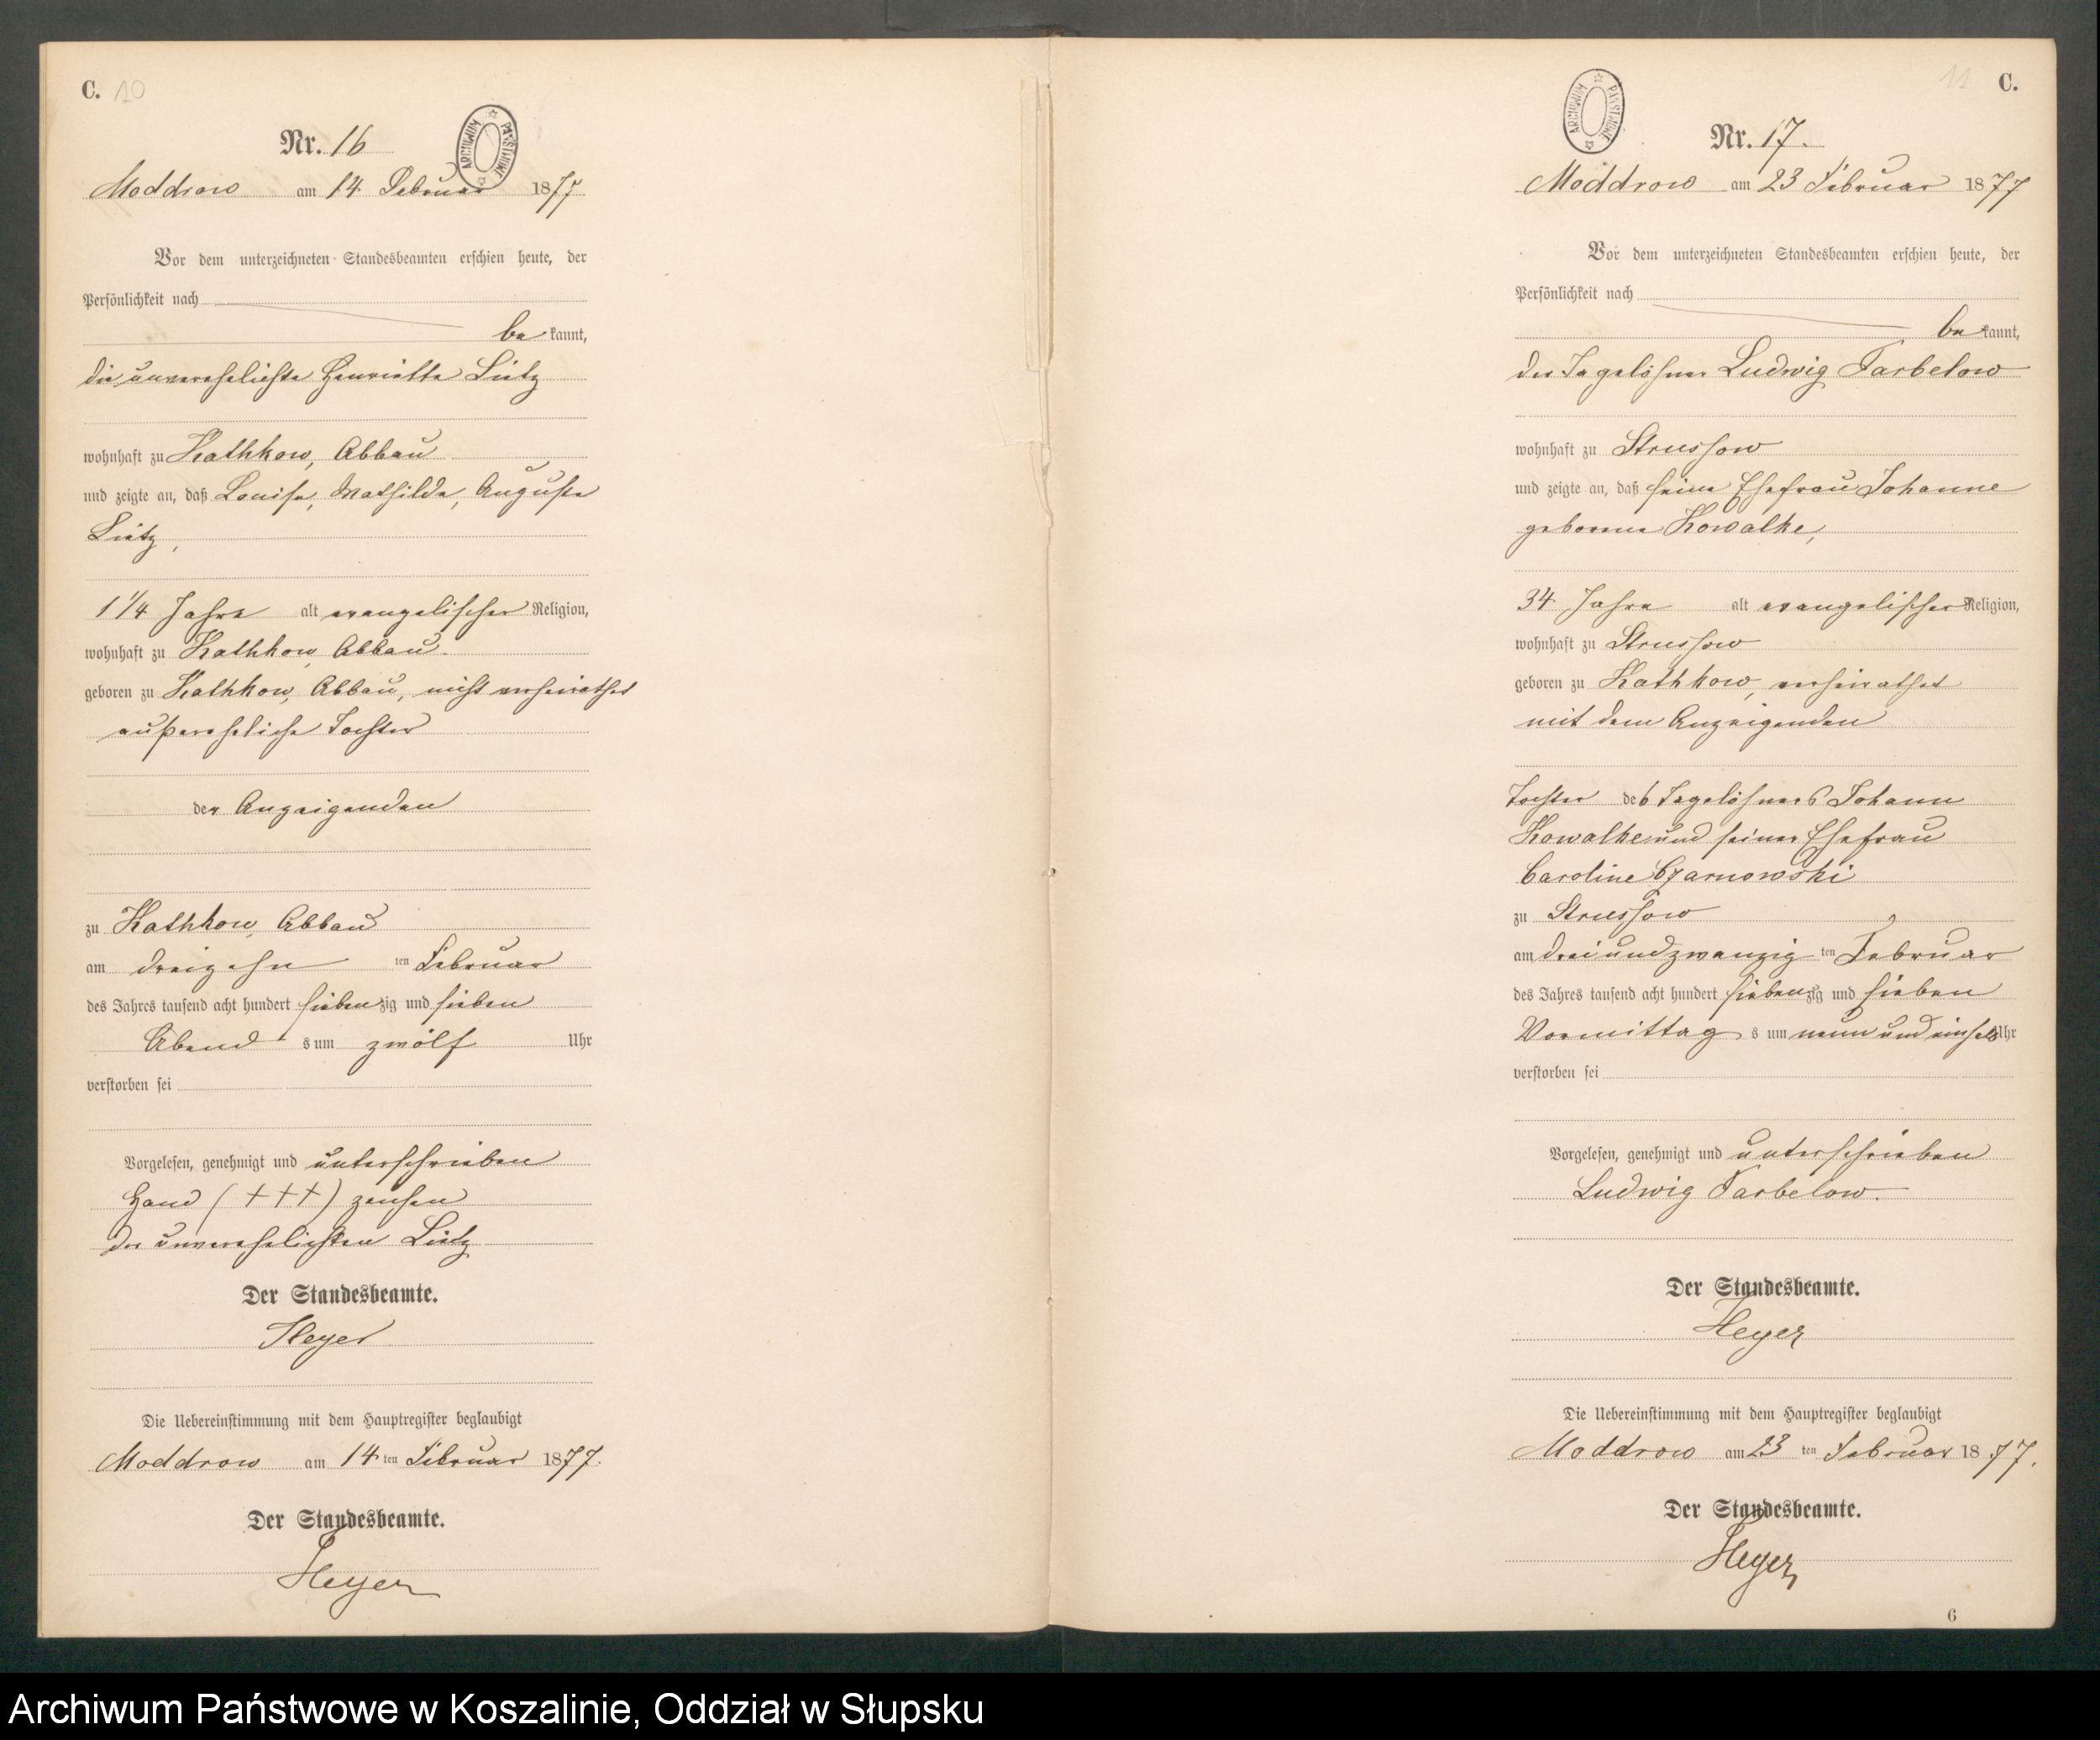 C. 10
ARCHIWUM PAŃSTWOWE
Nr. 16
Moddrow am 14 Februar 1877
Vor dem unterzeichneten Standesbeamten erschien heute, der
Persönlichkeit nach
be kannt,
die unverehelichte Henriette Lietz
wohnhaft zu Kathkow, Abbau
und zeigte an, daß Louise, Mathilde, Auguste
Lietz,
1 1/4 Jahre alt evangelischer Religion,
wohnhaft zu Kathkow, Abbau.
geboren zu Kathkow, Abbau, nicht verheirathet
außereheliche Tochter
der Anzeigenden
zu Kathkow, Abbau
am dreizehn ten Februar
des Jahres tausend acht hundert siebenzig und sieben
Abend s um zwölf Uhr
verstorben sei
Vorgelesen, genehmigt und unterschrieben
Hand (+++) zeichen
der unverehelichten Lietz
Der Standesbeamte.
Heyer
Die Uebereinstimmung mit dem Hauptregister beglaubigt
Moddrow am 14 ten Februar 1877.
Der Standesbeamte.
Heyer
11 C.
ARCHIWUM PAŃSTWOWE
Nr. 17.
Moddrow am 23 Februar 1877
Vor dem unterzeichneten Standesbeamten erschien heute, der
Persönlichkeit nach
be kannt,
der Tagelöhner Ludwig Farbelow
wohnhaft zu Strussow
und zeigte an, daß seine Ehefrau Johanne
geborene Kowalke,
34 Jahre alt evangelischer Religion,
wohnhaft zu Strussow
geboren zu Kathkow, verheirathet
mit dem Anzeigenden
Tochter des Tagelöhners Johann
Kowalke und seiner Ehefrau
Caroline Czarnowski
zu Strussow
am dreiundzwanzig ten Februar
des Jahres tausend acht hundert siebenzig und sieben
Vormittag s um neun und einhalb Uhr
verstorben sei
Vorgelesen, genehmigt und unterschrieben
Ludwig Farbelow.
Der Standesbeamte.
Heyer
Die Uebereinstimmung mit dem Hauptregister beglaubigt
Moddrow am 23 ten Februar 1877.
Der Standesbeamte.
Heyer
6
Archiwum Państwowe w Koszalinie, Oddział w Słupsku